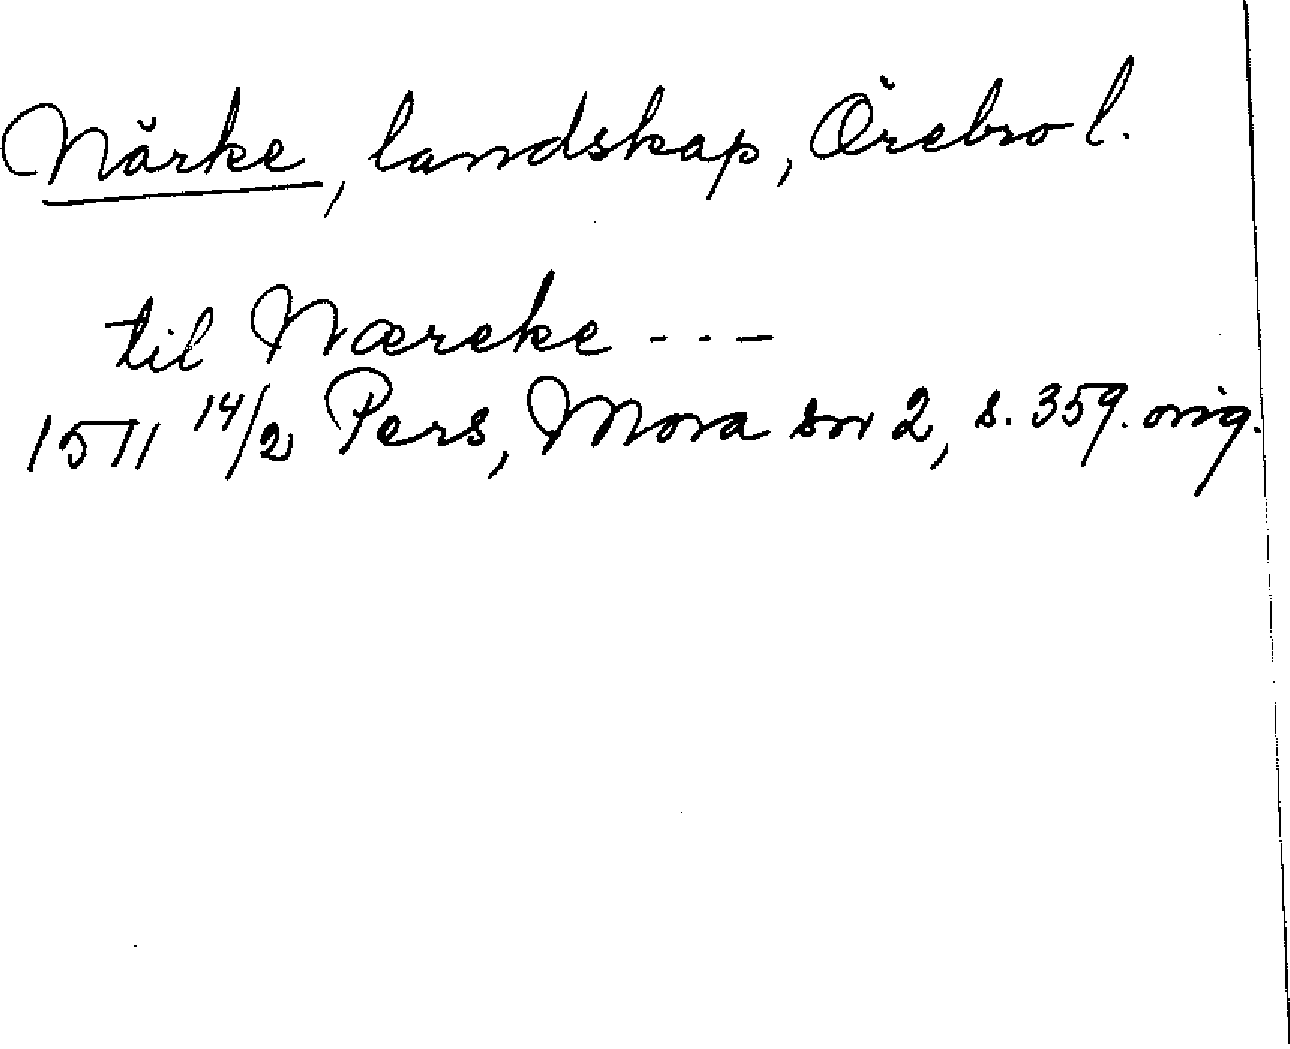 Närke, landskap, Örebro l.
til Næreke - - -
1511 14/2 Pers, Mora sn 2, s. 359. orig.